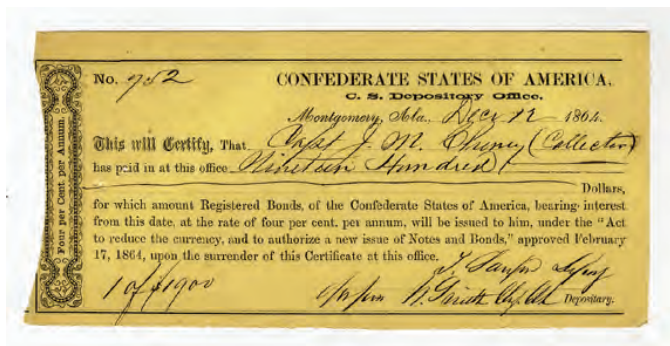 No. 752
CONFEDERATE STATES OF AMERICA,
C. S. Depository Office,
Montgomery, Ala., Decr 12 1864.
This will Certify, That Capt J. M. (Collector)
has paid in at this office Nineteen Hundred
Dollars,
for which amount Registered Bonds, of the Confederate States of America, bearing interest
from this date, at the rate of four per cent. per annum, will be issued to him, under the “Act
to reduce the currency, and to authorize a new issue of Notes and Bonds,” approved February
17, 1864, upon the surrender of this Certificate at this office.
1 of $1900
Depositary.
Four per Cent. per Annum.